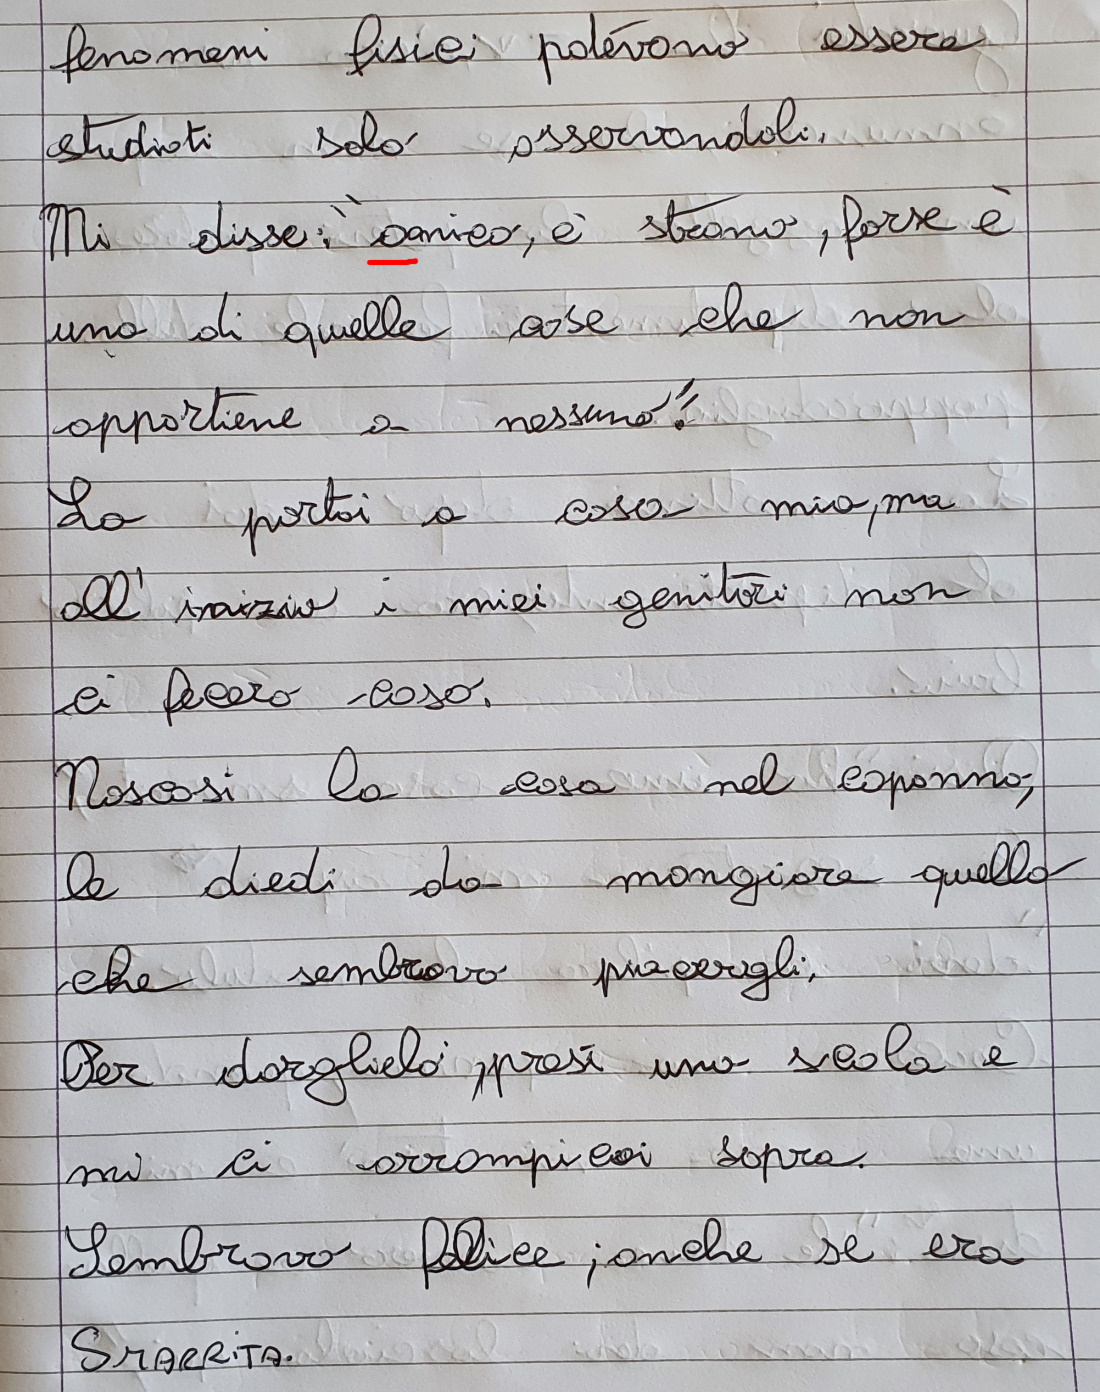 fenomeni fisici potevono essere
studiati solo osservandoli.
Mi disse: "amico, è strano, forse è
una di quelle cose che non
appartiene a nessuno"!
La portai a casa mia, ma
all'inizio i miei genitori non
ci fecero caso.
Nascosi la cosa nel capanno,
le diedi da mangiare quello
che sembrava piacergli.
Per darglielo, presi una scala e
mi ci arrampicai sopra.
Sembrava felice, anche se era
SMARRITA.